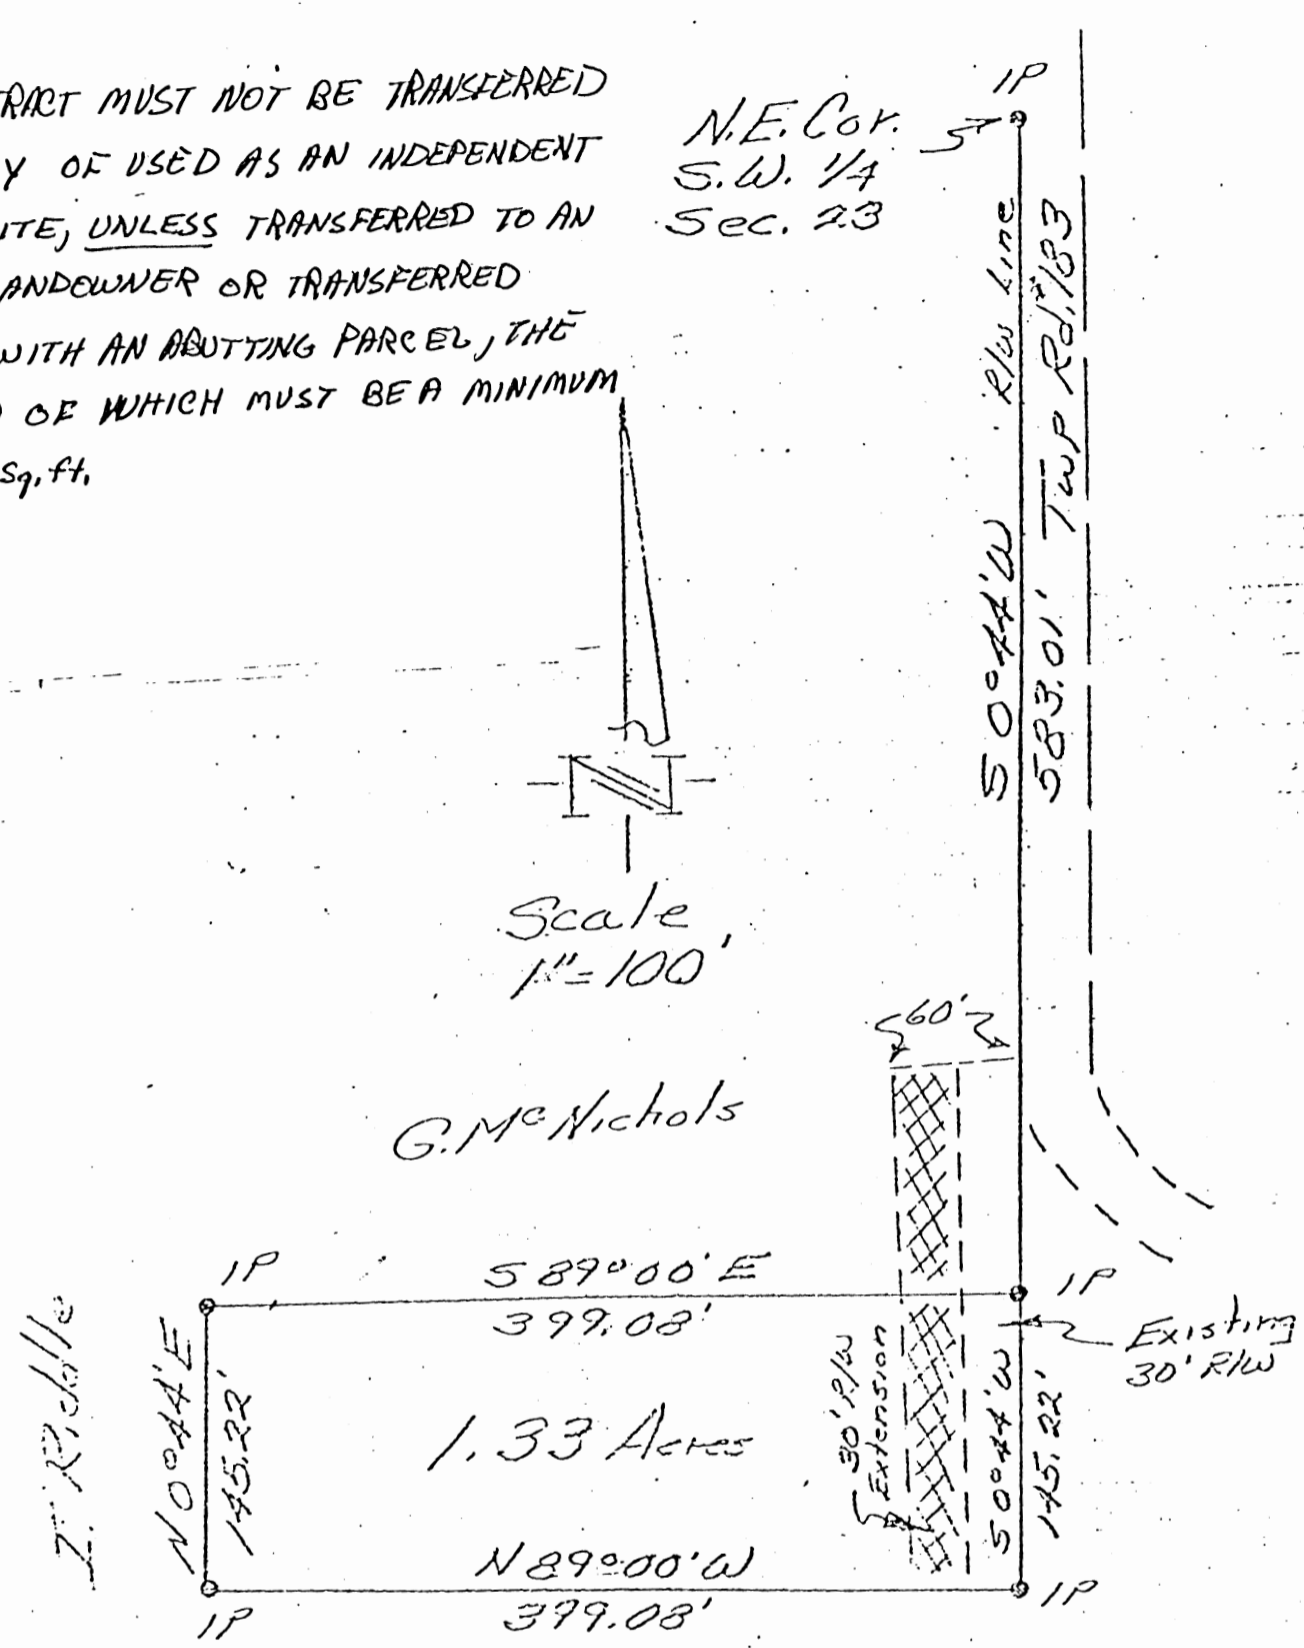 RACT MUST NOT BE TRANSFERRED
Y OF USED AS AN INDEPENDENT
ITE, UNLESS TRANSFERRED TO AN
ANDOWNER OR TRANSFERRED
WITH AN ABUTTING PARCEL, THE
OF WHICH MUST BE A MINIMUM
Sq. ft.
IP
N.E. Cor.
S.W. 1/4
Sec. 23
R/W Line
Twp Rd. #183
S 0°44' W
583.01'
Scale
1"=100'
60'
G. McNichols
IP
S 89°00' E
399.08'
IP
Existing
30' R/W
I. Riddle
N 0°44' E
145.22'
1.33 Acres
30' R/W
Extension
S 0°44' W
145.22'
N 89°00' W
399.08'
IP
IP